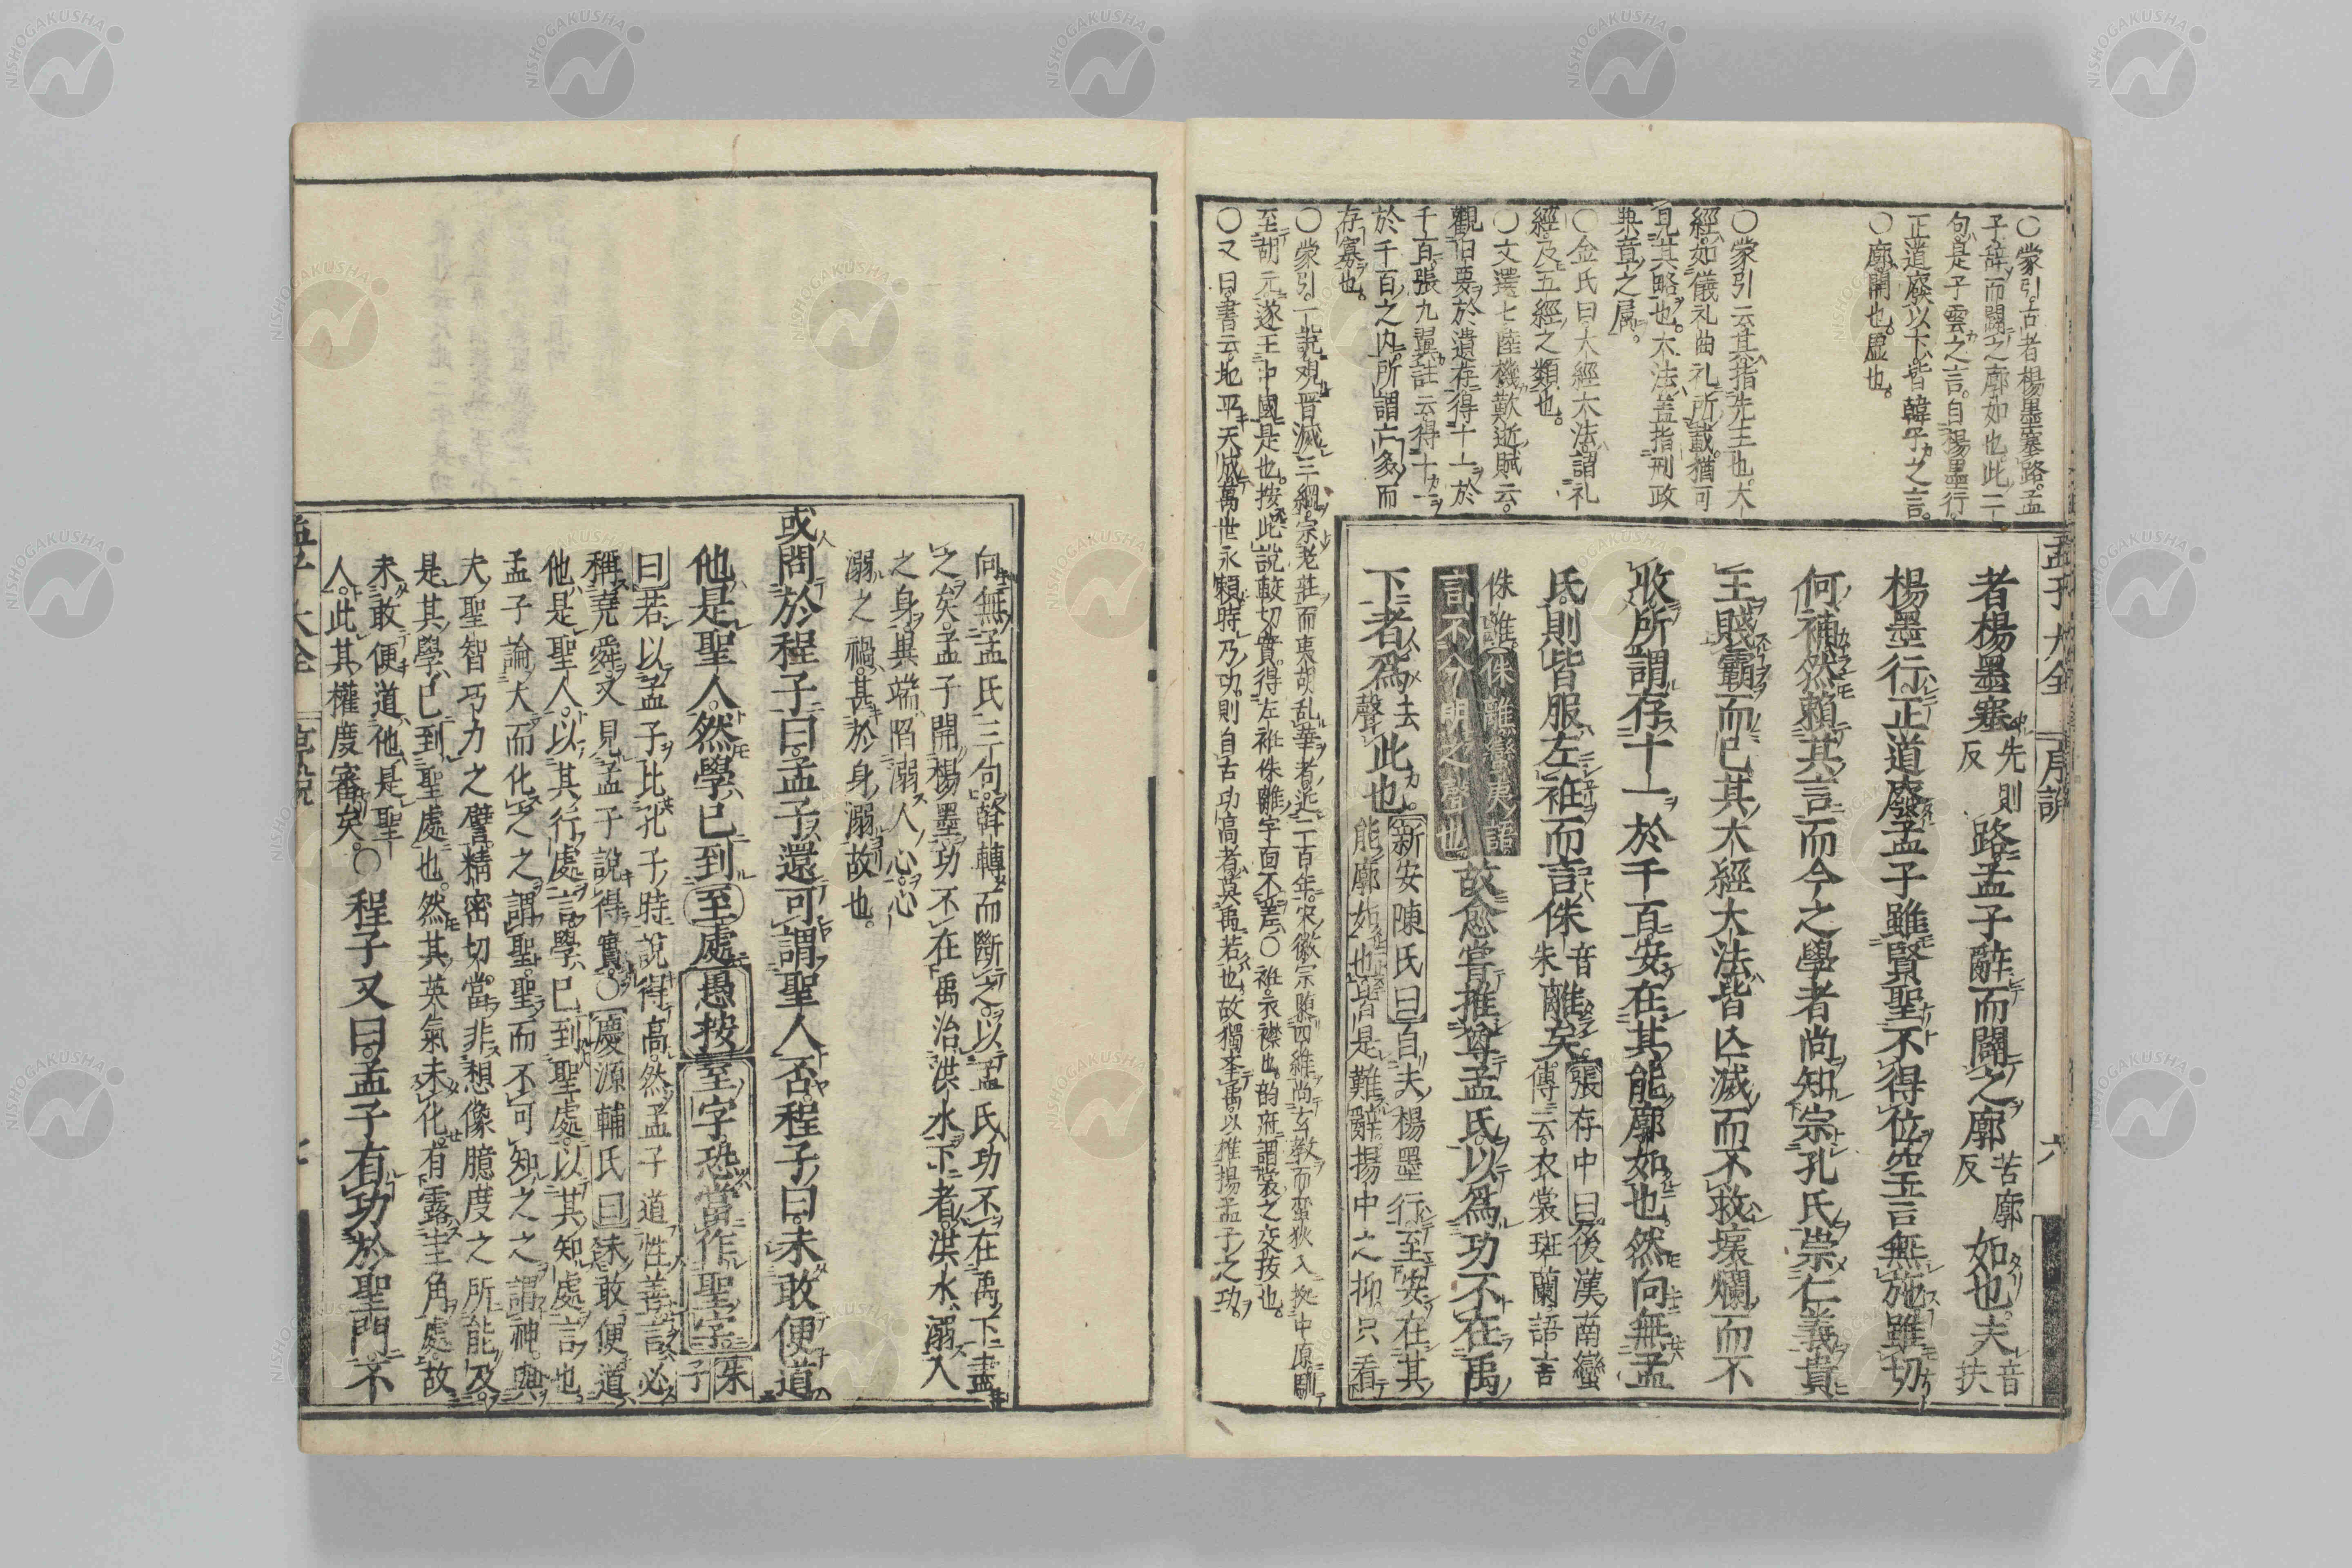 ○蒙引古者楊墨塞路孟
子辭而闢之廓如也此二
句是子雲之言自楊墨行
正道廢以下皆韓子之言
○廓開也虛也
○蒙引云其指先王也大
經如儀礼曲礼所載猶可
見其略也大法盖指刑政
典章之属
○金氏曰大經大法謂礼
經及五經之類也
○文選七陸機歎逝賦云
觀旧要於遺存得十一於
千百張九翼註云得十一
於千百之内所謂亡多而
存寡也
○蒙引一説观晋滅三綱宗老莊而夷胡乱華者
至胡元遂王中國是也按此説較切實得左袵侏離字面不差○袵衣襟也韵府謂裳之交接也
○又曰書云地平天成萬世永頼時乃功則自古功高者莫禹若也故獨本禹以推揚孟子之功
孟子大全 序説 六
者楊墨塞先則反路孟子辭而闢之廓苦廓反如也夫音扶
楊墨行正道廢孟子雖賢聖不得位空言無施雖切
何補然賴其言而今之學者尚知宗孔氏崇仁義貴
王賤霸而已其大經大法皆亡滅而不救壞爛而不
收所謂存十一於千百安在其能廓如也然向無孟
氏則皆服左袵而言侏音朱離矣張存中曰後漢南蠻傳云衣裳班蘭語言
侏離侏離蠻夷語言不分明之聲也故愈嘗推尊孟氏以爲功不在禹
下者爲去聲此也新安陳氏曰自夫楊墨行至安在其能廓如也皆是難辭揚中之抑只看
向無孟氏三句幹轉而斷之以孟氏功不在禹下盡
之矣孟子開楊墨功不在禹治洪水下者洪水溺人
之身異端陷溺人心心
溺之禍甚於身溺故也
或問於程子曰孟子還可謂聖人否程子曰未敢便道
他是聖人然學已到至處愚按至字恐當作聖字朱子
曰若以孟子比孔子時説得高然孟子道性善言必
稱堯舜又見孟子説得實○慶源輔氏曰未敢便道
他是聖人以其行處言學已到聖處以其知處言也
孟子論大而化之之謂聖聖而不可知之之謂神與
夫聖智巧力之譬精密切當非想像臆度之所能及
是其學已到聖處也然其英氣未化有露圭角處故
未敢便道他是聖
人此其權度審矣○程子又曰孟子有功於聖門不
孟子大全 序説